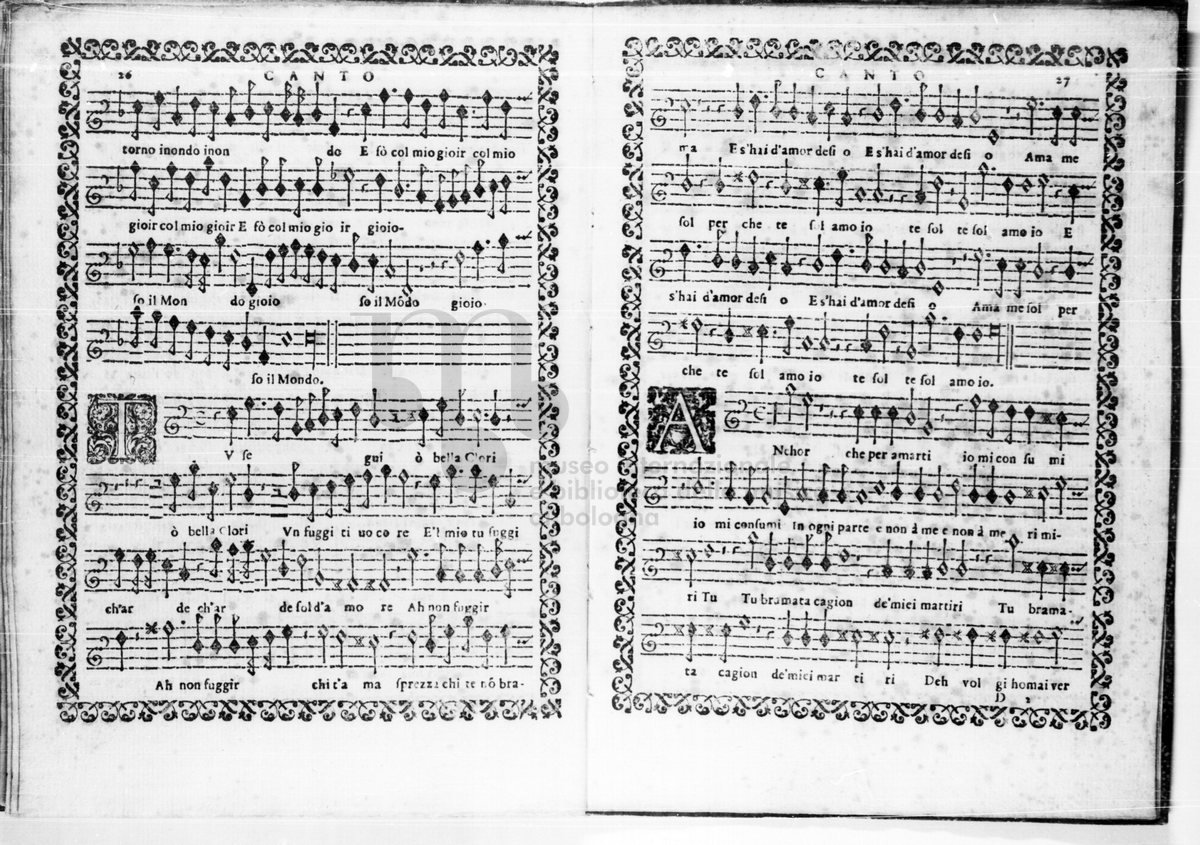 26 CANTO
torno inondo inon do E sò col mio gioir col mio
gioir col mio gioir E sò col mio gio ir gioio-
so il Mon do gioio so il Mōdo gioio-
so il Mondo.
T V se gui ò bella Clori
ò bella Clori Vn fuggi ti uo co re E'l mio tu fuggi
ch'ar de ch'ar de sol d'a mo re Ah non fuggir
Ah non fuggir chi t'a ma sprezza chi te nō bra-
CANTO 27
ma E s'hai d'amor desi o E s'hai d'amor desi o Ama me
sol per che te sol amo io te sol te sol amo io E
s'hai d'amor desi o E s'hai d'amor desi o Ama me sol per
che te sol amo io te sol te sol amo io.
A Nchor che per amarti io mi con su mi
io mi consumi In ogni parte e non à me e non à me ri mi-
ri Tu Tu bramata cagion de'miei martiri Tu brama-
ta cagion de'miei mar ti ri Deh vol gi homai ver
D 2
museo internazionale
e biblioteca della musica
di bologna